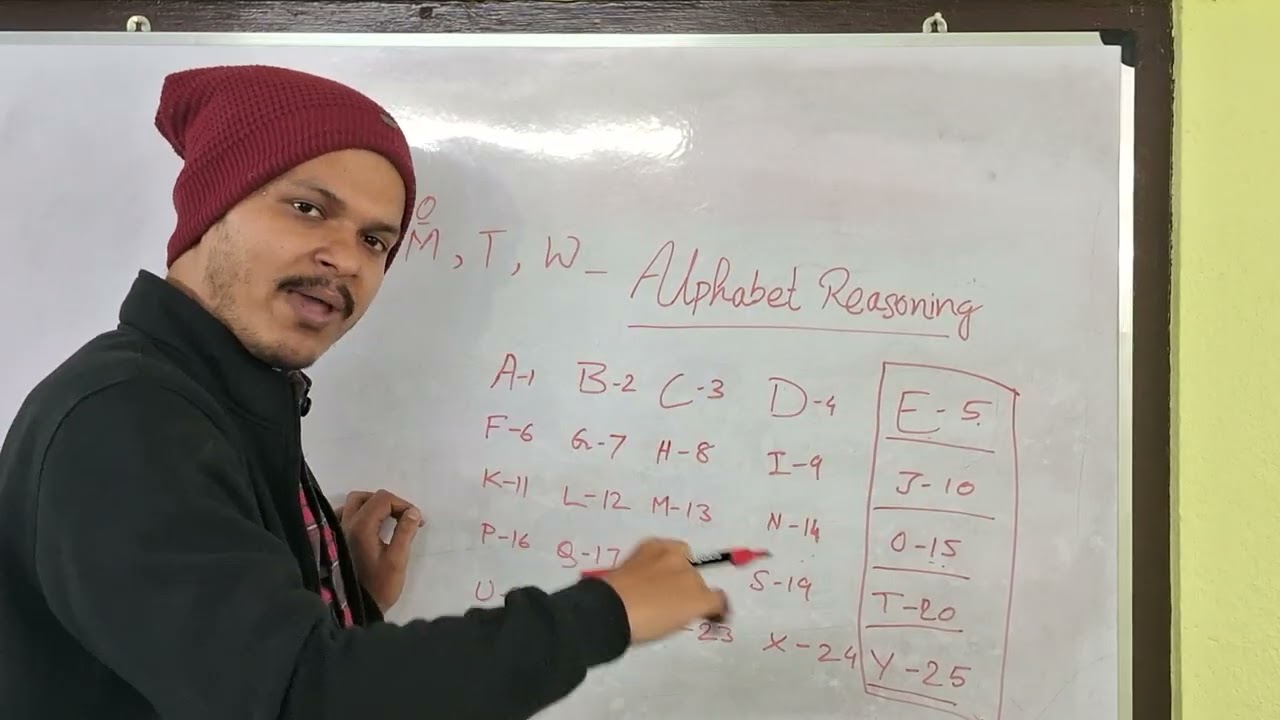 O
M, T, W - Alphabet Reasoning
A-1 B-2 C-3 D-4 E-5
F-6 G-7 H-8 I-9 J-10
K-11 L-12 M-13 N-14 O-15
P-16 Q-17 S-19 T-20
U- -23 X-24 Y-25